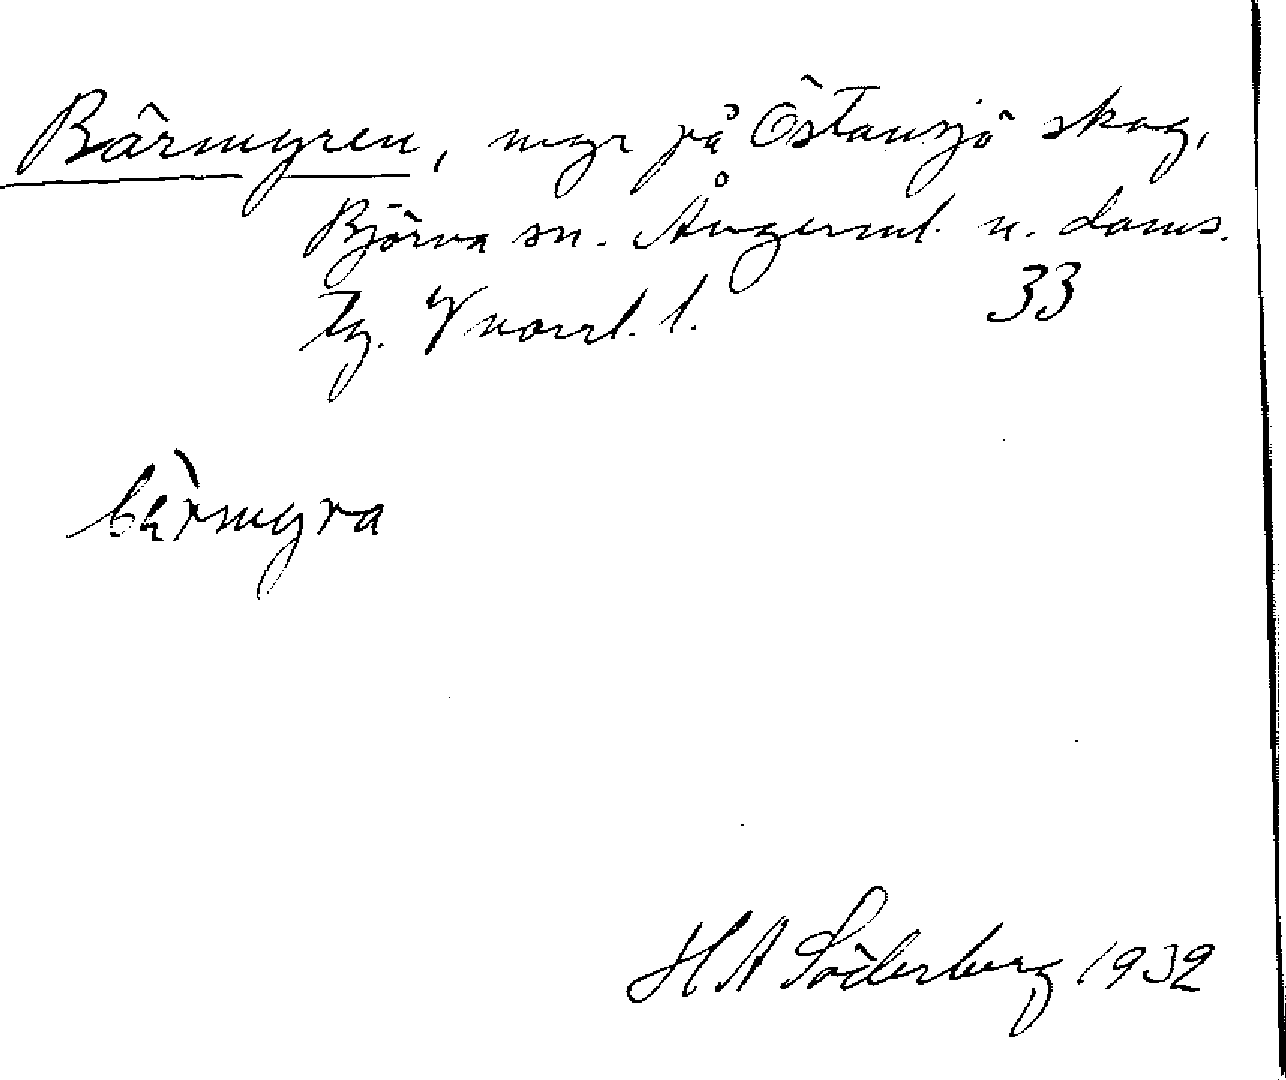 Bärmyren, myr på Östansjö skog,
Björna sn. Ångerml. n. doms.
tg. Vnorrl. l. 33
bärmyra
H A Söderberg 1932